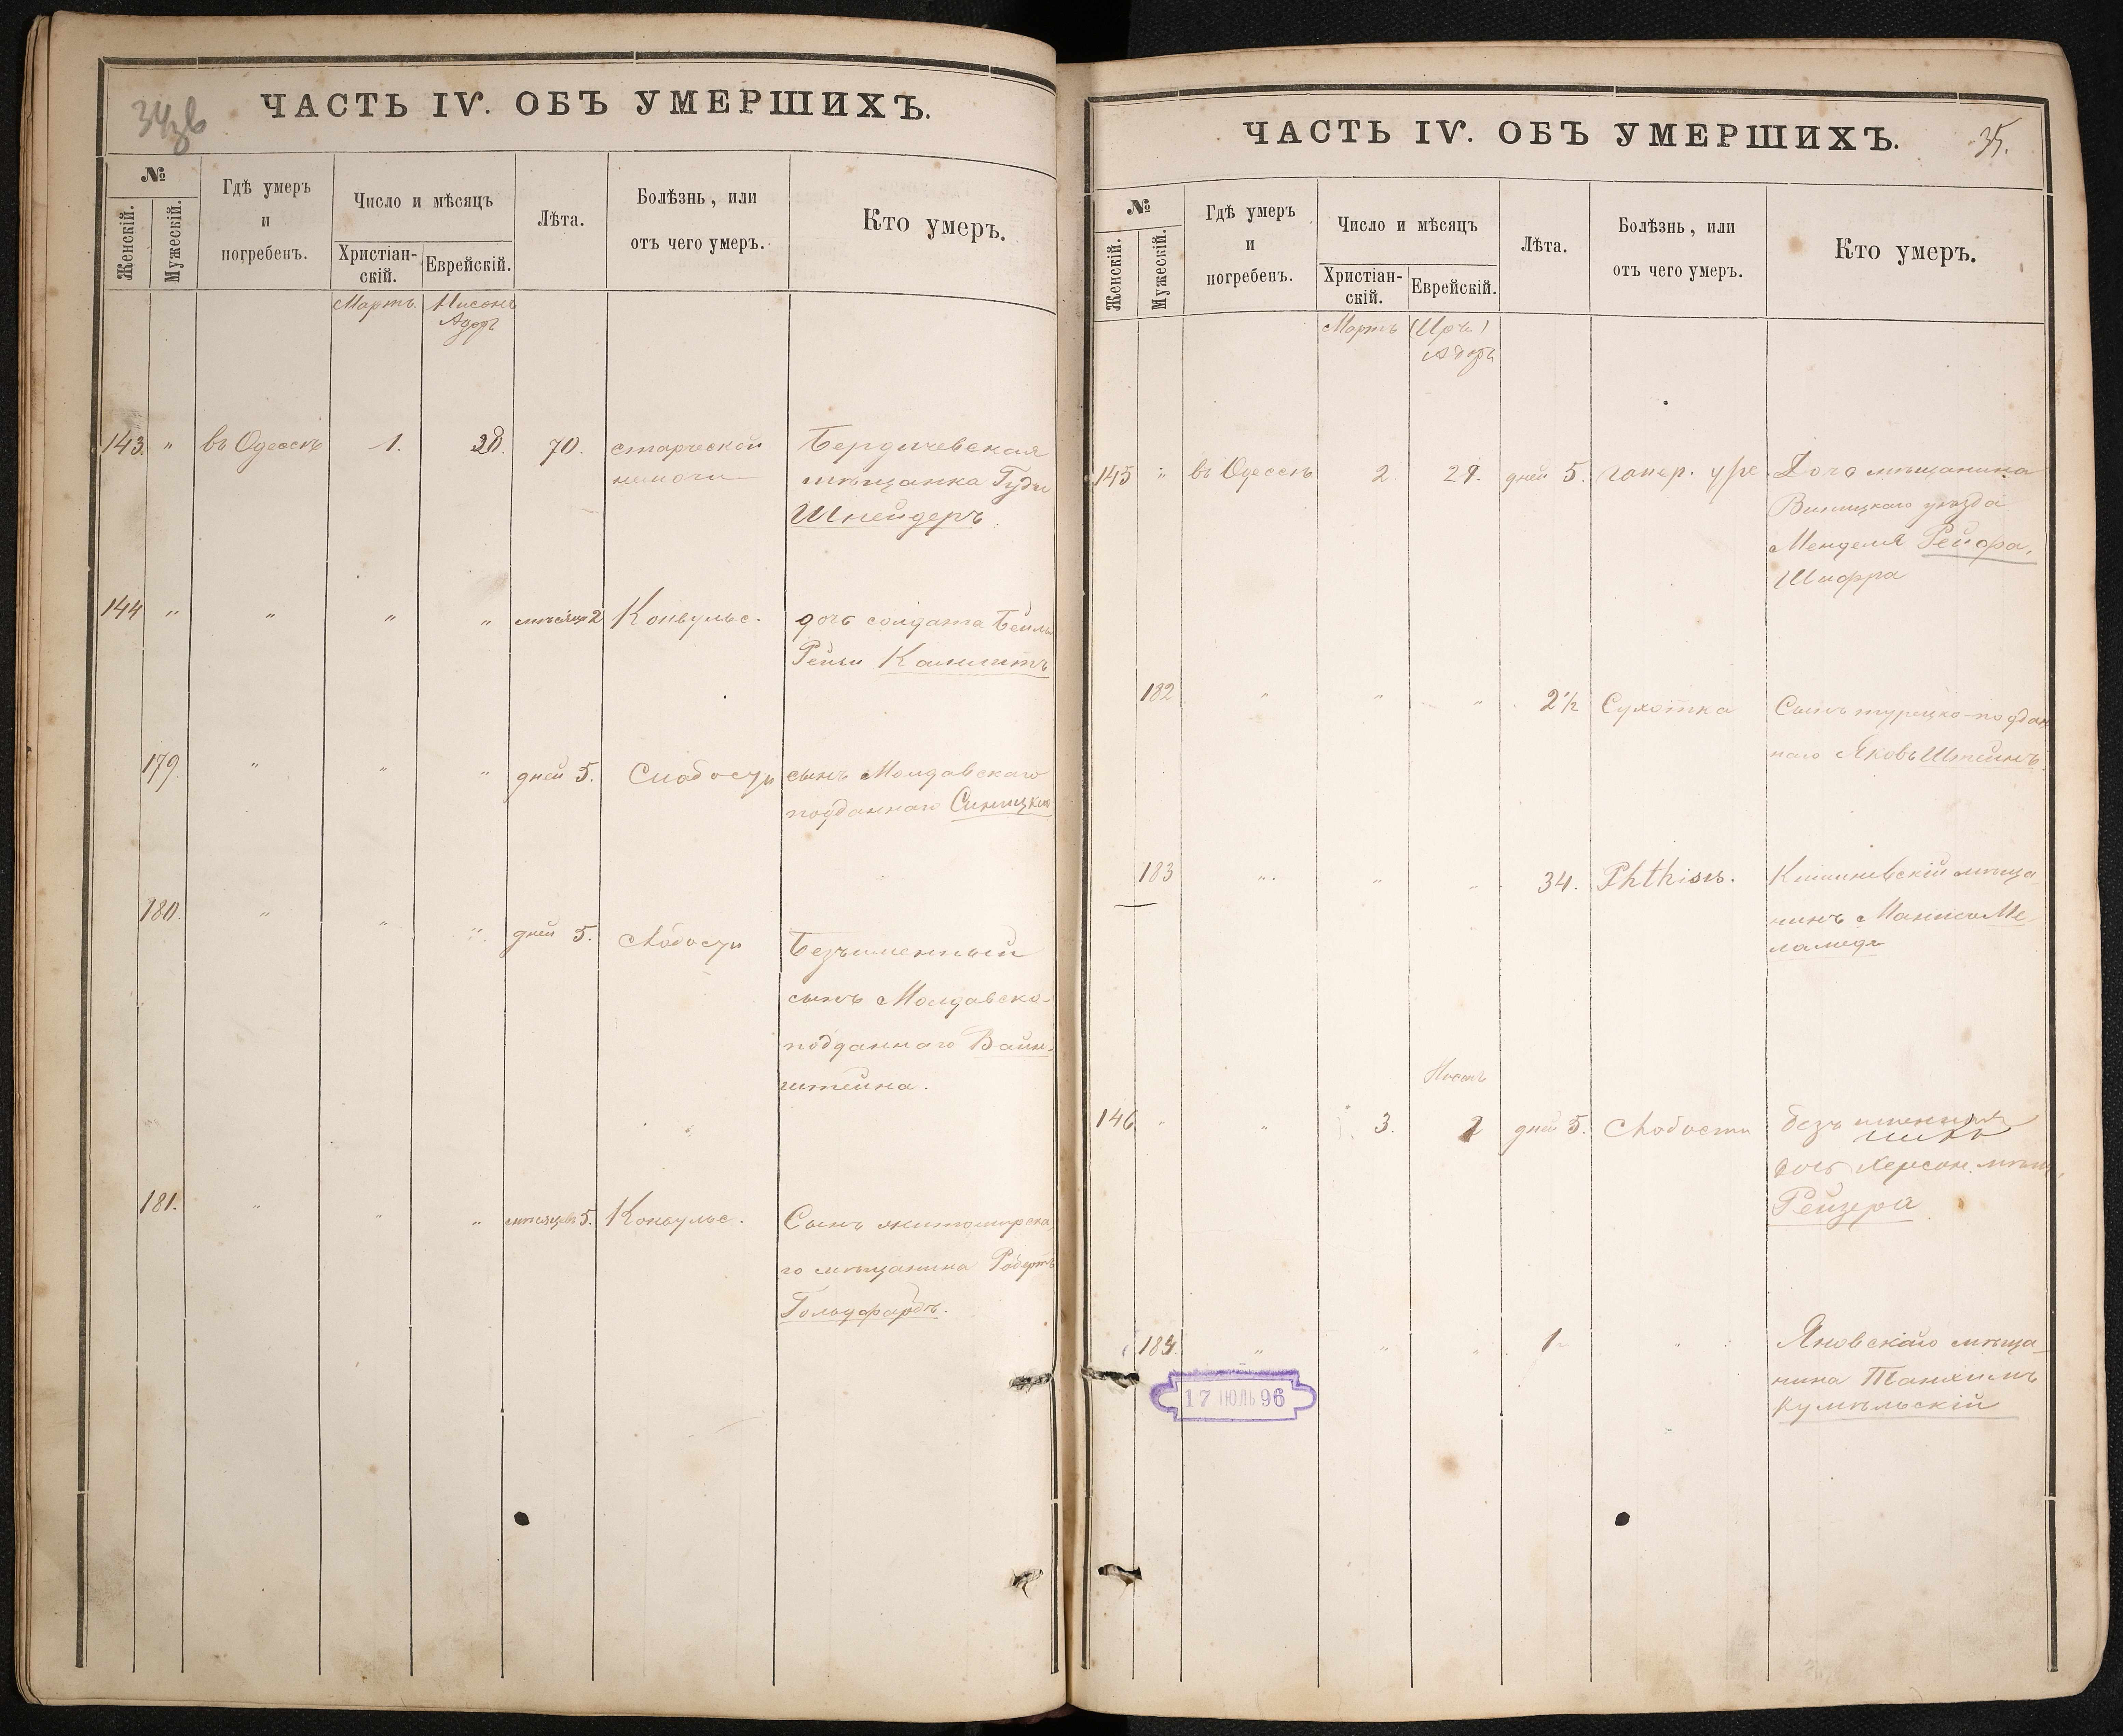 34 зв
ЧАСТЬ IV. ОБЪ УМЕРШИХЪ.
№
Женскій.
Мужескій.
Гдѣ умеръ
и
погребенъ.
Число и мѣсяцъ
Христіан-
скій.
Еврейскій.
Лѣта.
Болѣзнь, или
отъ чего умеръ.
Кто умеръ.
Мартъ. Нисонъ
Адаръ
143. " въ Одессѣ 1. 28. 70. старческой Бердичевская
немочи мѣщанка Гудя
Шнейдеръ.
144 " " " " мѣсяца 2 Конвульс. дочь солдата Бейла
Рейзи
179. " " " дней 5. Слабости сынъ Молдавскаго
подданнаго Синицкаго
180. " " " дней 5. слабости Безъименный
сынъ Молдавско-
подданнаго Вайн-
штейна.
181. " " " мѣсяцевъ 5. Конвульс. Сынъ житомирска
го мѣщанина Робертъ
Гольдфарбъ.
ЧАСТЬ IV. ОБЪ УМЕРШИХЪ.
35.
№
Женскій.
Мужескій.
Гдѣ умеръ
и
погребенъ.
Число и мѣсяцъ
Христіан-
скій.
Еврейскій.
Лѣта.
Болѣзнь, или
отъ чего умеръ.
Кто умеръ.
Мартъ
Адаръ
145 " въ Одессѣ 2. 29. дней 5. Дочь мѣщанина
Виницкаго уѣзда
Менделя
Шифра
182 " " " 2 1/2 Сухотка Сынъ турецко-поддан
наго Яковъ Штейнъ.
183 " " " 34. Phthisis. Кишиневскій мѣща
нинъ Манисъ Ме
ламедъ
Нисонъ
146 " " 3. 2 дней 5. Слабости безъ именная
дочь Херсон. мѣщ.
Рейзера
184. " " " 1 " Яновскаго мѣща-
нина Танхимъ
Кумѣльскій
17 ІЮЛЬ 96